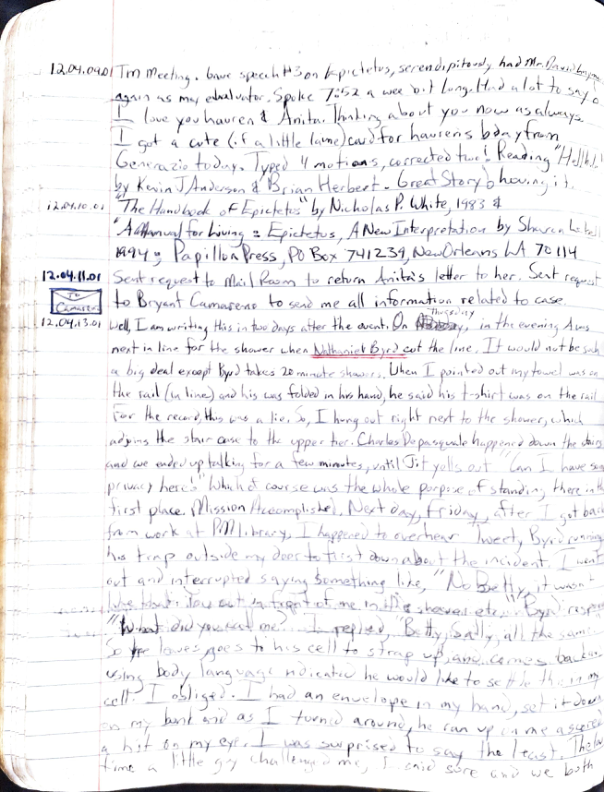 12.04.04.01 TM Meeting. Gave speech #3 on Epictetus, serendipitously had Mr. David
again as my evaluator. Spoke 7:52 a wee bit long. Had a lot to say
I love you Lauren & Anita. Thinking about you now as always
I got a cute (if a little lame) card for Laurens bday from
Generazio today. Typed 4 motions, corrected two! Reading
by Kevin J Anderson & Brian Herbert. Great Story loving it.
12.04.10.01 "The Handbook of Epictetus" by Nicholas P. White, 1983 &
"A Manual for Living = Epictetus, A New Interpretation by Sharon
1994; Papillon Press, PO Box 741239, New Orleans LA 70114
12.04.11.01 Sent request to Mail Room to return Anita's letter to her. Sent request
To Camareno to Bryant Camareno to send me all information related to case
12.04.13.01 Well, I am writing this in two days after the event. On Thursday, in the evening I was
next in line for the shower when Nathaniel Byrd cut the line. It would not be such
a big deal except Byrd takes 20 minute showers. When I pointed out my towel was on
the rail (in line) and his was folded in his hand, he said his t-shirt was on the rail
For the record, this was a lie. So, I hung out right next to the shower, which
adjoins the stair case to the upper tier. Charles Depasquale happened down the stairs
and we ended up talking for a few minutes, until Jit yells out "Can I have some
privacy here!" Which of course was the whole purpose of standing there in the
first place. Mission Accomplished. Next day, Friday, after I got back
from work at PM library, I happened to overhear Tweety, Byrd running
his trap outside my door to first down about the incident. I went
out and interrupted saying something like, "No Betty, it wasn't
like that. You cut in front of me in the shower etc." Byrd
"What did you call me?" I replied, "Betty, Sally, all the same
So he goes to his cell to strap up, and comes back
using body language indicated he would like to settle this in my
cell. I obliged. I had an envelope in my hand, set it down
on my bunk and as I turned around, he ran up on me & scored
a hit on my eye. I was surprised to say the least. The last
time a little guy challenged me, I said sure and we both